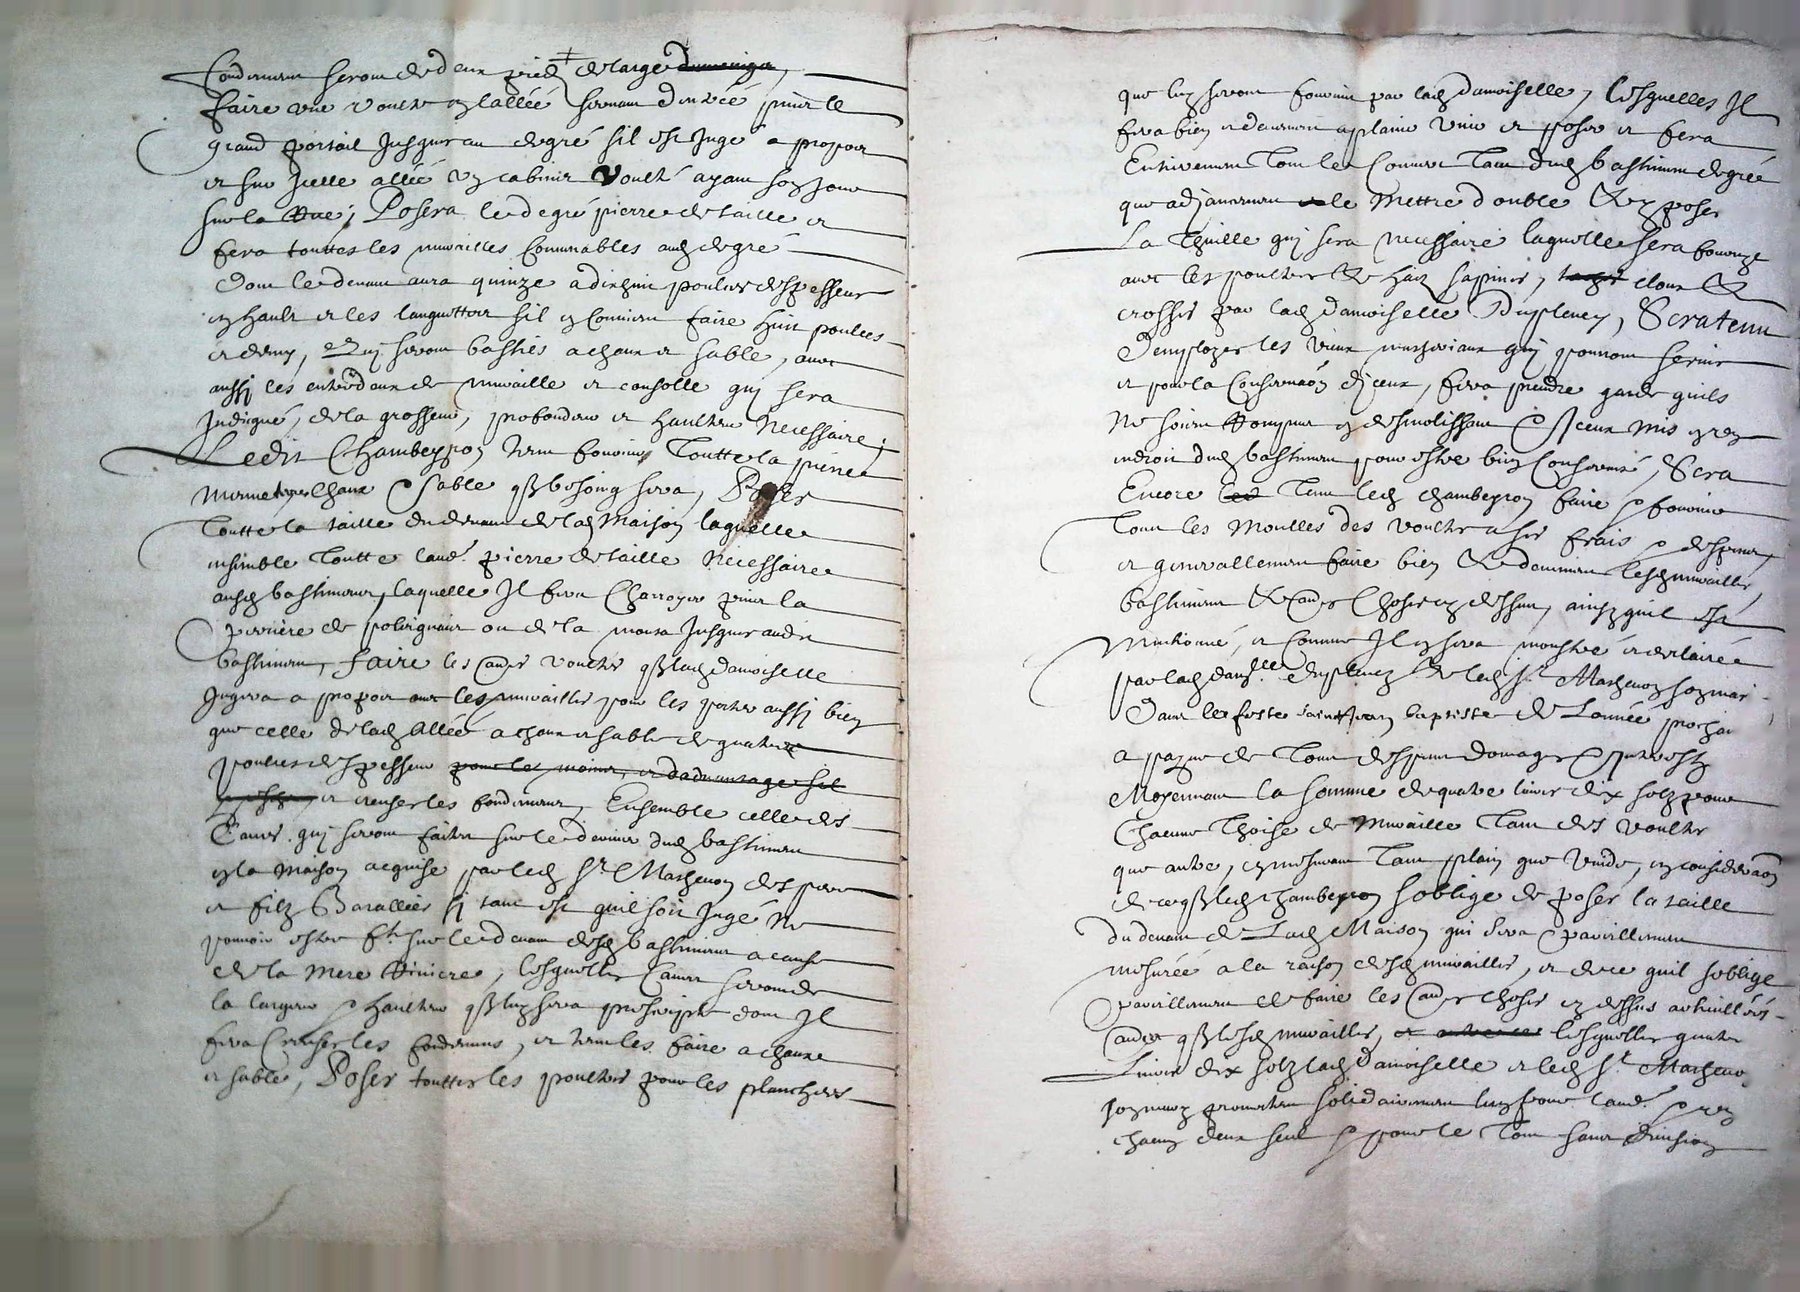 fondemens seront de deux pieds de large
faire une voulte en l'allée servant d'entrée pour le
grand portail jusques au degré sil est jugé a propos
et sur icelle allée un cabinet voulté ayant son jour
sur la Rue, Posera le degré pierre de taille et
fera touttes les murailles convenables audit degré
dont le devant aura quinze a dixhuit poulces despesseur
en hault et les languettes sil y convient faire huit poulces
et demy, qui seront basties a chaux et sable, avec
aussi les entredeux de muraille et consolle qui sera
Indiqué, de la grosseur, profondeur et haulteur Necessaire;
Ledit Chambeyron tenu fournir Toutte la pierre
Chaux & sable quil besoing sera, Poser
Toutte la taille du devant de lad maison laquelle
ensemble Toutte l'autre pierre de taille Necessaire
ausd bastiment, laquelle Il fera Charroyer pour la
perriere de ou de la jusques audit
bastiment, faire les autres voultes que lad damoiselle
Jugera a propos avec les murailles pour les porter aussi bien
que celle de lad Allée a chaux et sable de quatre
poulces despesseur pour le moins, et dadvantage sil
et creuser les fondemens, Ensemble celle des
Caves qui seront faites sur le derriere dud bastiment
en la maison acquise par led Sr Mathevon des pere
et filz Barallier si tant est quil soit Jugé Ne
pouvoir estre ft sur le devant desd bastiment a cause
de la Mere Riviere, lesquelles Caves seront de
la largeur & haulteur quil luy sera prescript dont Il
fera Creuser les fondemens, et tenu les faire a chaux
et sable, Poser touttes les poultres pour les planchers
que luy seront fournis par lad damoiselle, lesquelles Il
fera bien et deuement aplanir unir et poser et fera
Entierement Tout le Couvert Tant dud bastiment degré
que adjancement le Mettre double & y poser
La Thuille qui sera necessaire laquelle sera fournye
avec les poultres & haiz sapins, cloux &
crosses par lad damoiselle Dupleney, Sera tenu
D'employer les vieux matheriaux qui pourront servir
et pour la Conservaon diceux, fera prendre garde quils
Ne soient Rompus en desmolissant & Iceux mis en
endroit dud bastiment pour estre bien Conservés, Sera
Encore Tenu led chambeyron faire & fournir
Tous les Moulles des voultes a ses frais & despens,
et generallement faire bien & deuement lesd murailles,
bastiment & autres Choses cy dessus, ainsy quil est
Mentionné, et comme Il y sera monstré et declairé
par lad damlle Dupleney & led Sr Mathevon son mari
Dans les feste saint Jean baptiste de Lannée prochai
a payne de Tous despens domages & Interestz
Moyennant la somme de quatre livres dix solz pour
Chacune Thoise de Muraille Tant des voultes
que autre, en mesurant Tant plain que vuide, en consideraon
de ce que led chambeyron soblige de poser la taille
du devant de Lad Maison qui sera pareillement
mesurée a la raison desd murailles, et de ce quil soblige
pareillement de faire les autres choses cy dessus articullées
autres que lesd murailles, lesquelles quatre
Livres dix solz lad damoiselle et led Sr Mathevon
promettent solidairement luy pour l'autre &
chacun deux seul & pour le Tout sans division